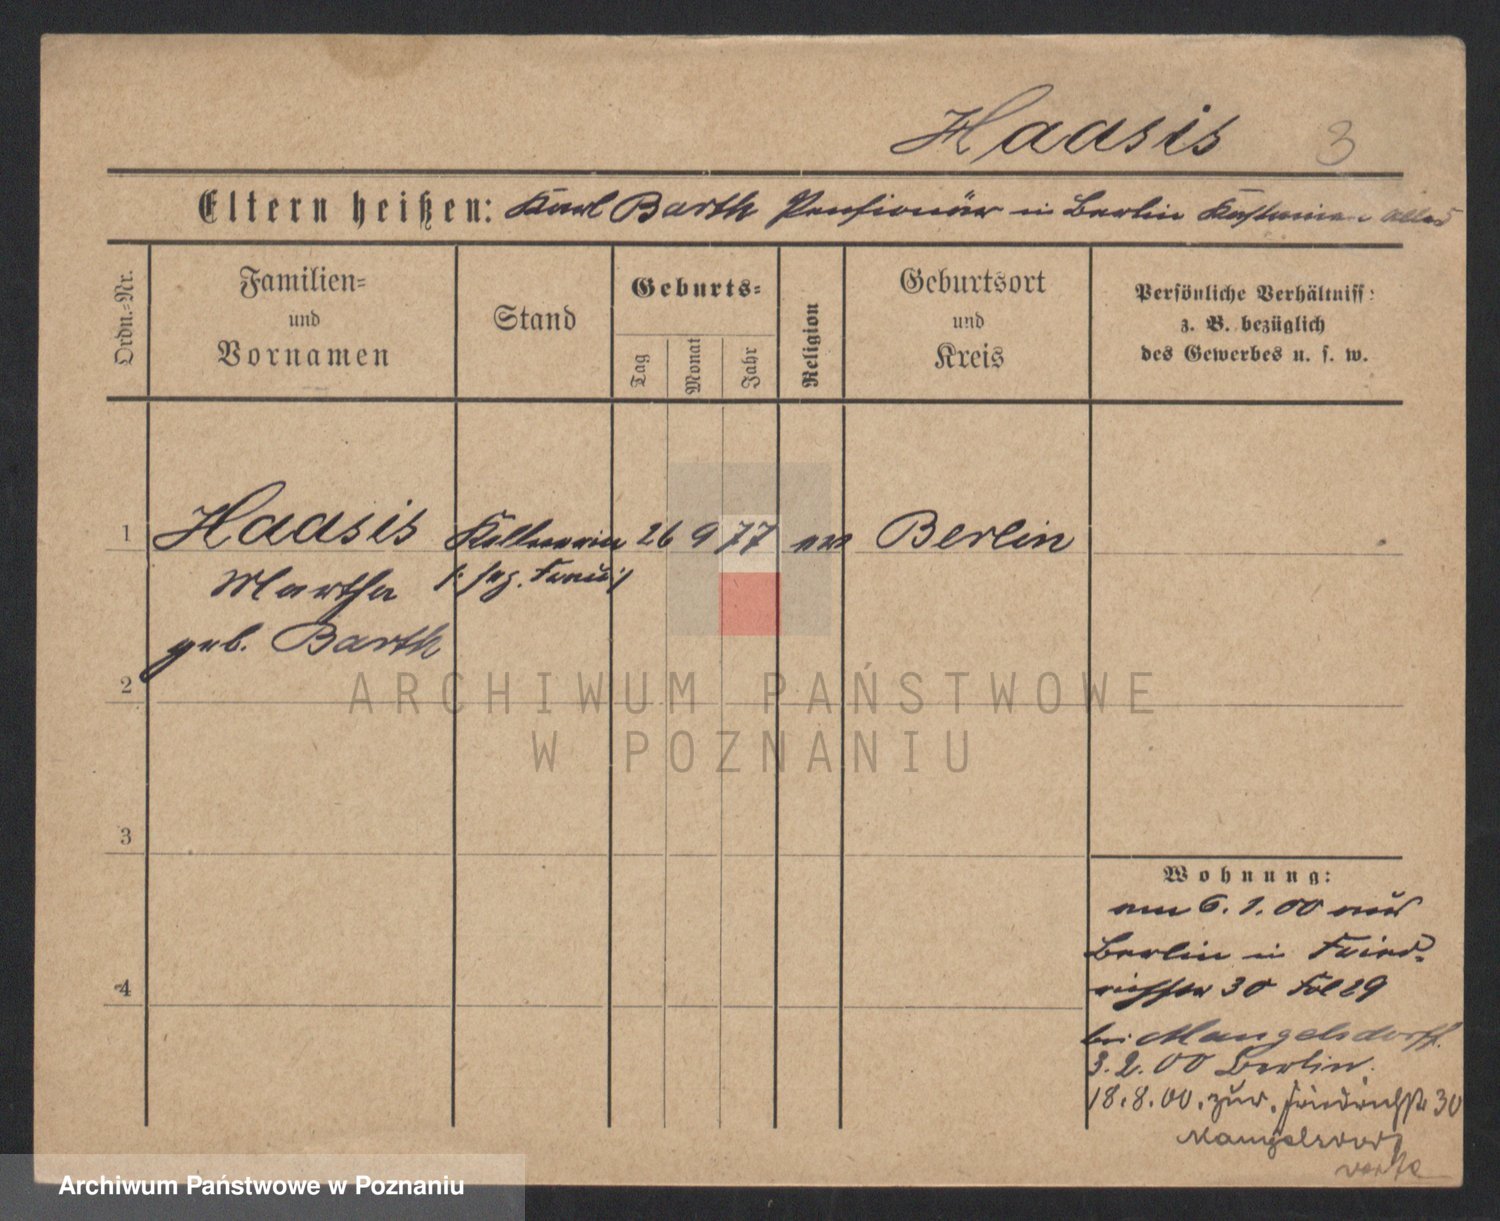 Haasis 3
Eltern heißen: Karl Barth Pensionär in Berlin
Ordn.-Nr.
Familien-
und
Vornamen
Stand
Geburts-
Tag
Monat
Jahr
Religion
Geburtsort
und
Kreis
Persönliche Verhältniss:
z. B. bezüglich
des Gewerbes u. s. w.
1 Haasis Kellnerin 26 9 77 ev Berlin
Martha
geb. Barth
2
3
4
Wohnung:
am 6.1.00 aus
Berlin in Fried-
richstr 30
bei Mangelsdorff
3.2.00 Berlin.
18.8.00. zur. Friedrichstr 30
Mangelsdorf
ARCHIWUM PAŃSTWOWE
W POZNANIU
Archiwum Państwowe w Poznaniu